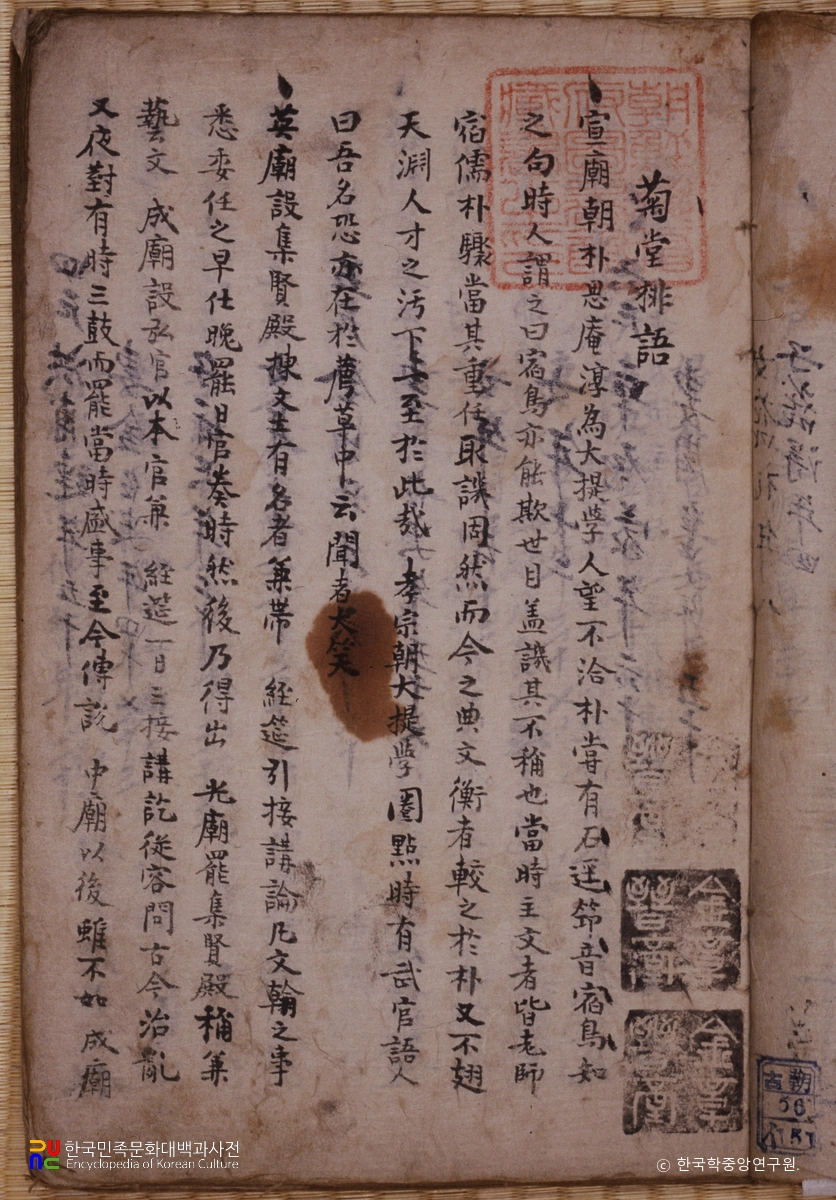 菊堂排語
宣廟朝朴思庵淳為大提學人望不洽朴甞有石逕筇音宿鳥知
之句時人謂之曰宿鳥亦能欺世目盖譏其不稱也當時主文者皆老師
宿儒朴驟當其重任取譏固然而今之典文衡者較之於朴又不翅
天淵人才之汚下一至於此哉 孝宗朝大提學圈點時有武官語人
曰吾名恐亦在於薦草中云聞者大笑
英廟設集賢殿揀文士有名者兼帶 經筵引接講論凡文翰之事
悉委任之早仕晚罷日官奏時然後乃得出 光廟罷集賢殿稱兼
藝文 成廟設弘官以本官兼 經筵一日三接講訖從容問古今治亂
又夜對有時三鼓而罷當時盛事至今傳說 中廟以後雖不如 成廟
古朝
56
한국민족문화대백과사전
Encyclopedia of Korean Culture
© 한국학중앙연구원.